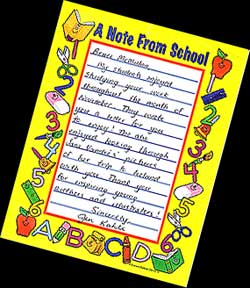 A Note From School
Bruce McMillan
My students enjoyed
studying your work
throughout the month of
November. They wrote
you a letter for you
to enjoy! We also
enjoyed looking through
pictures
of her trip to Iceland
with you. Thank you
for inspiring young
authors and illustrators!
Sincerely,
ABCD